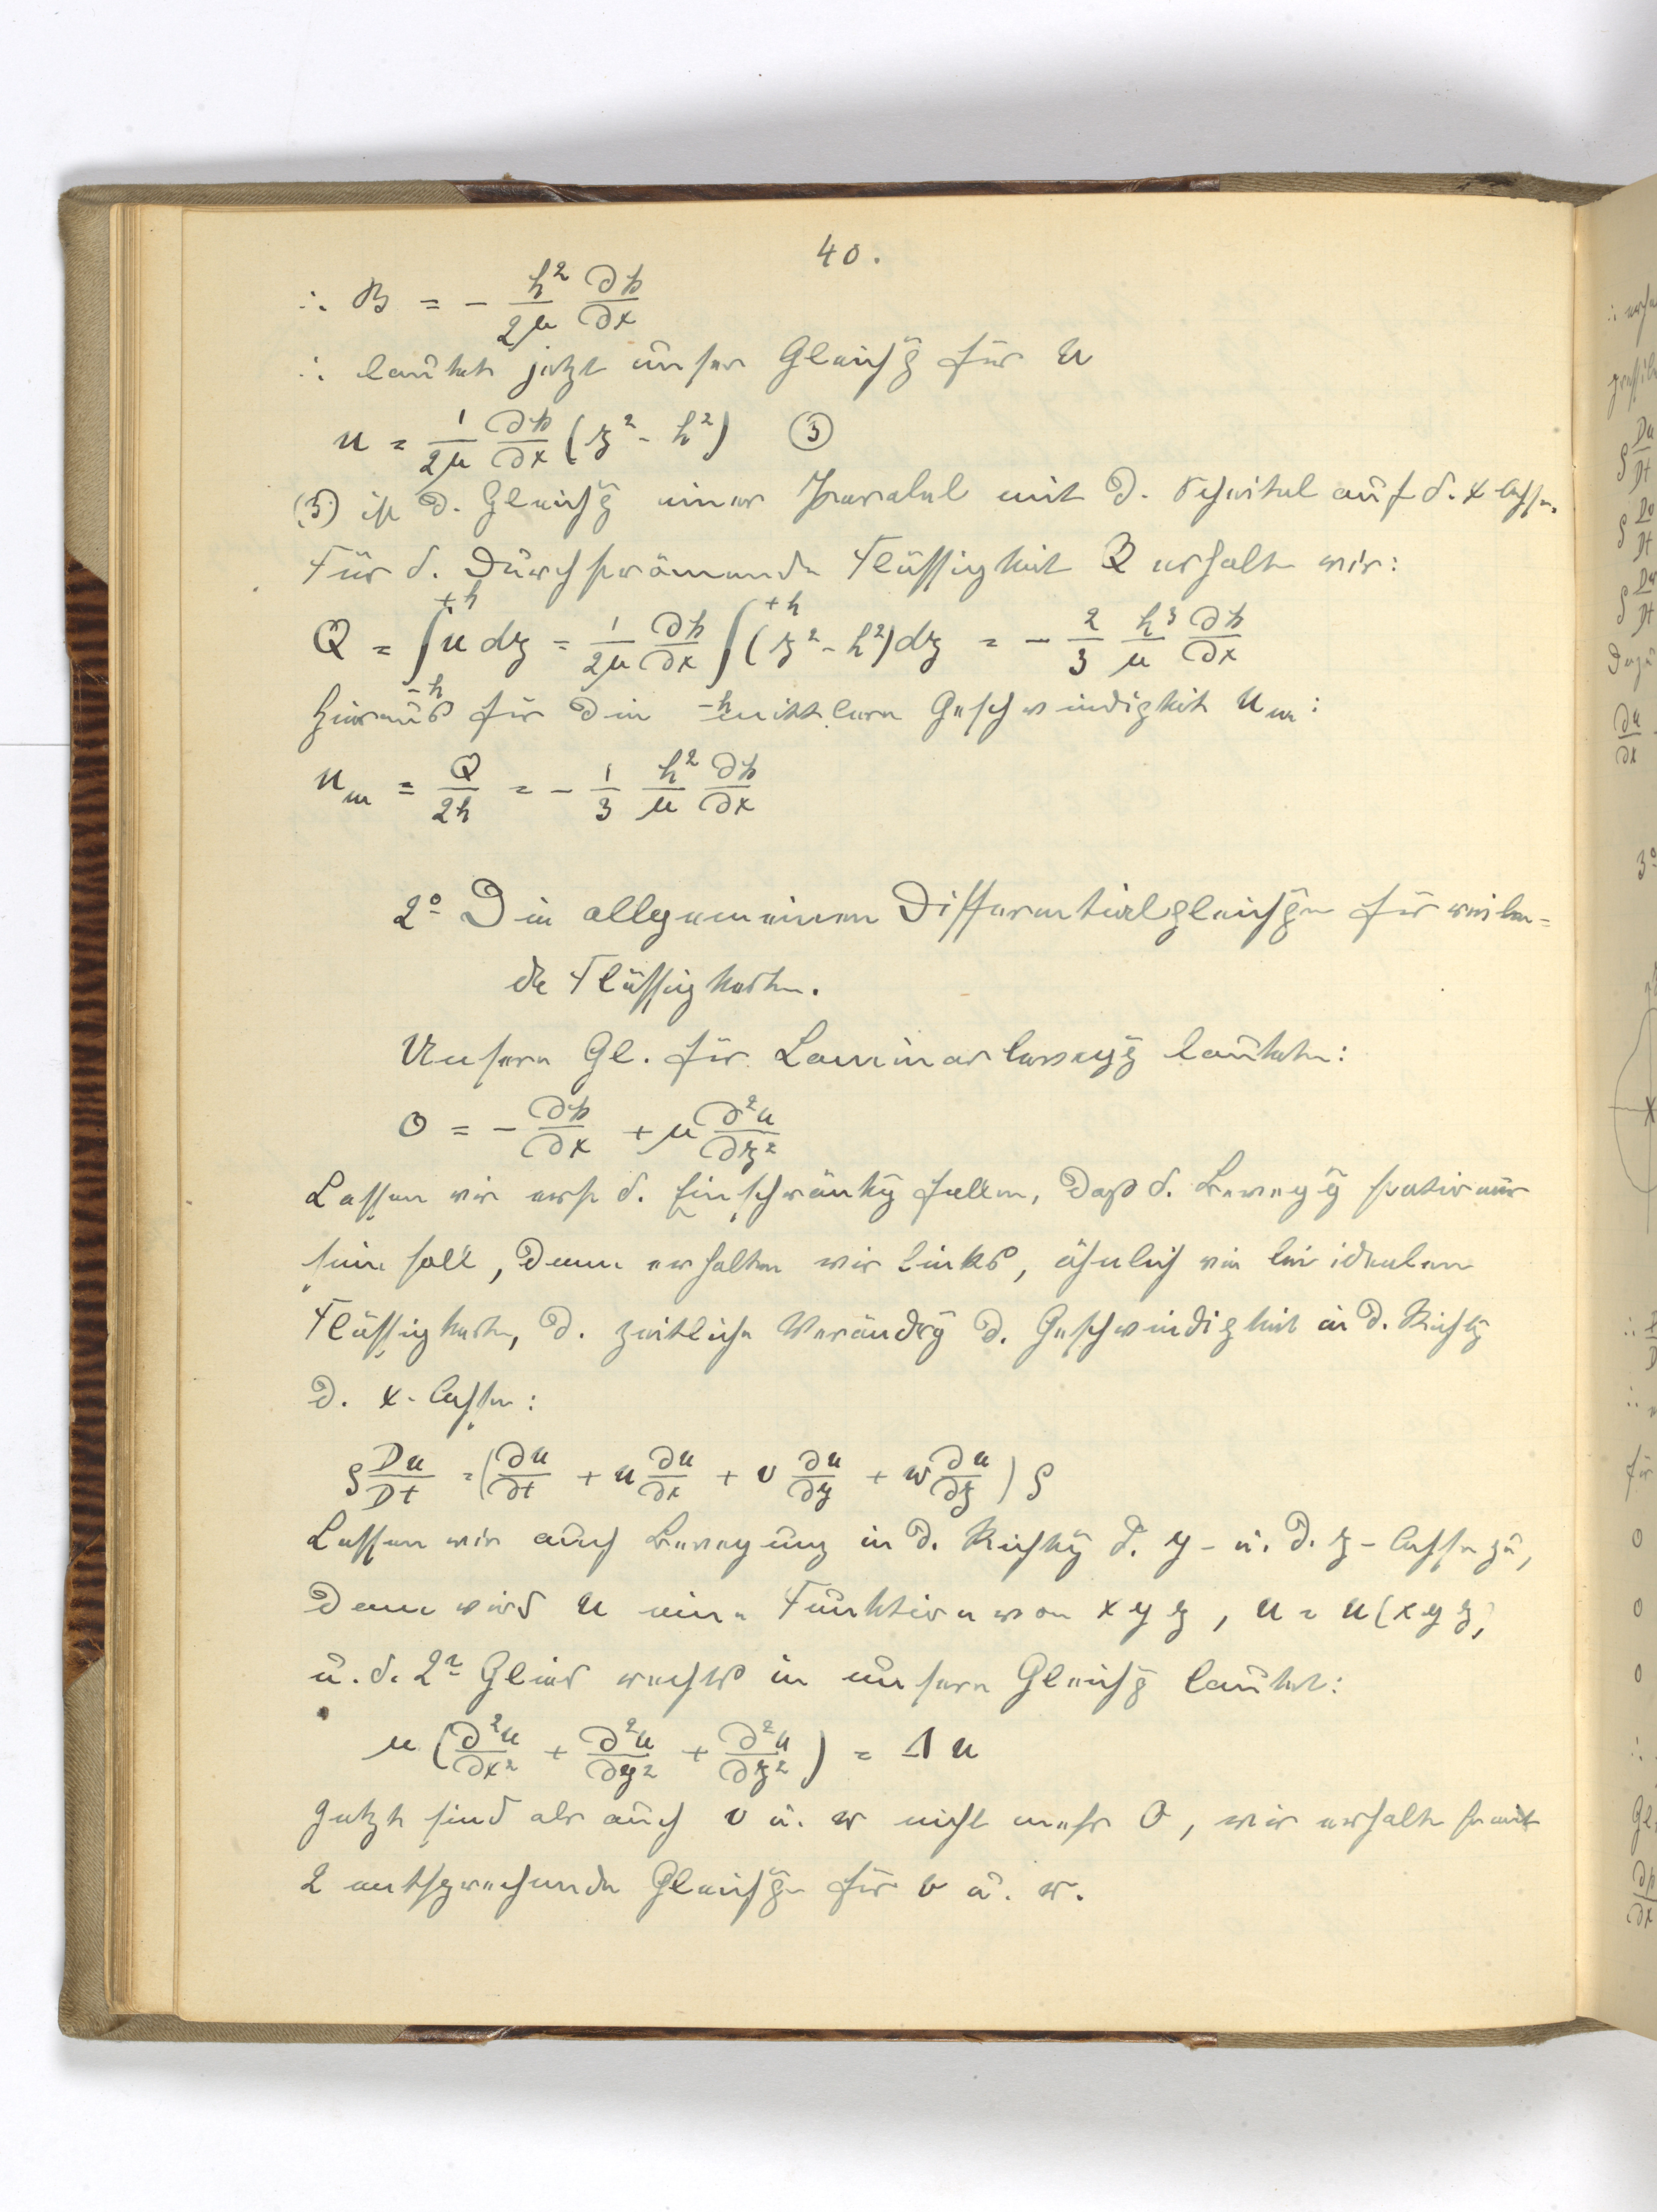 40.
∴ B = - h²/2μ ∂p/∂x
∴ lautet jetzt unser Gleichg̃ für u
u = 1/2μ ∂p/∂x (z² - h²) ③
(3) ist d. Gleichg̃ einer Parabel mit d. Scheitel auf d. x Achse.
Für d. durchströmende Flüssigkeit Q erhalt wir:
Q = ∫₋ₕ⁺ʰ u dz = 1/2μ ∂p/∂x ∫₋ₕ⁺ʰ (z² - h²) dz = - 2/3 h³/μ ∂p/∂x
Hieraus für die mittlere Geschwindigkeit uₘ:
uₘ = Q/2h = - 1/3 h²/μ ∂p/∂x
2º Die allgemeinen Differentialgleichg̃n für
Flüssigkeiten.
Unsere Gl. für Laminarbewegg̃ lautete:
0 = - ∂p/∂x + μ ∂²u/∂z²
Lassen wir erst d. Einschränkg̃ fallen, dass d. Bewegg̃ stationär
sein soll, dann erhalten wir links, ähnlich wie bei idealen
Flüssigkeiten, d. zeitliche Verändrg̃ d. Geschwindigkeit in d. Richtg̃
d. x-Achse:
ρ Du/Dt = (∂u/∂t + u ∂u/∂x + v ∂u/∂y + w ∂u/∂z) ρ
Lassen wir auch Bewegung in d. Richtg̃ d. y- u. d. z-Achse zu,
dann wird u eine Funktion von x y z, u = u(x y z)
u. d. 2te Glied rechts in unsere Gleichg̃ lautet:
μ (∂²u/∂x² + ∂²u/∂y² + ∂²u/∂z²) = Δ u
Jetzt sind abr auch v u. w nicht mehr 0, wir erhalte somit
2 entsprechende Gleichg̃n für v u. w.